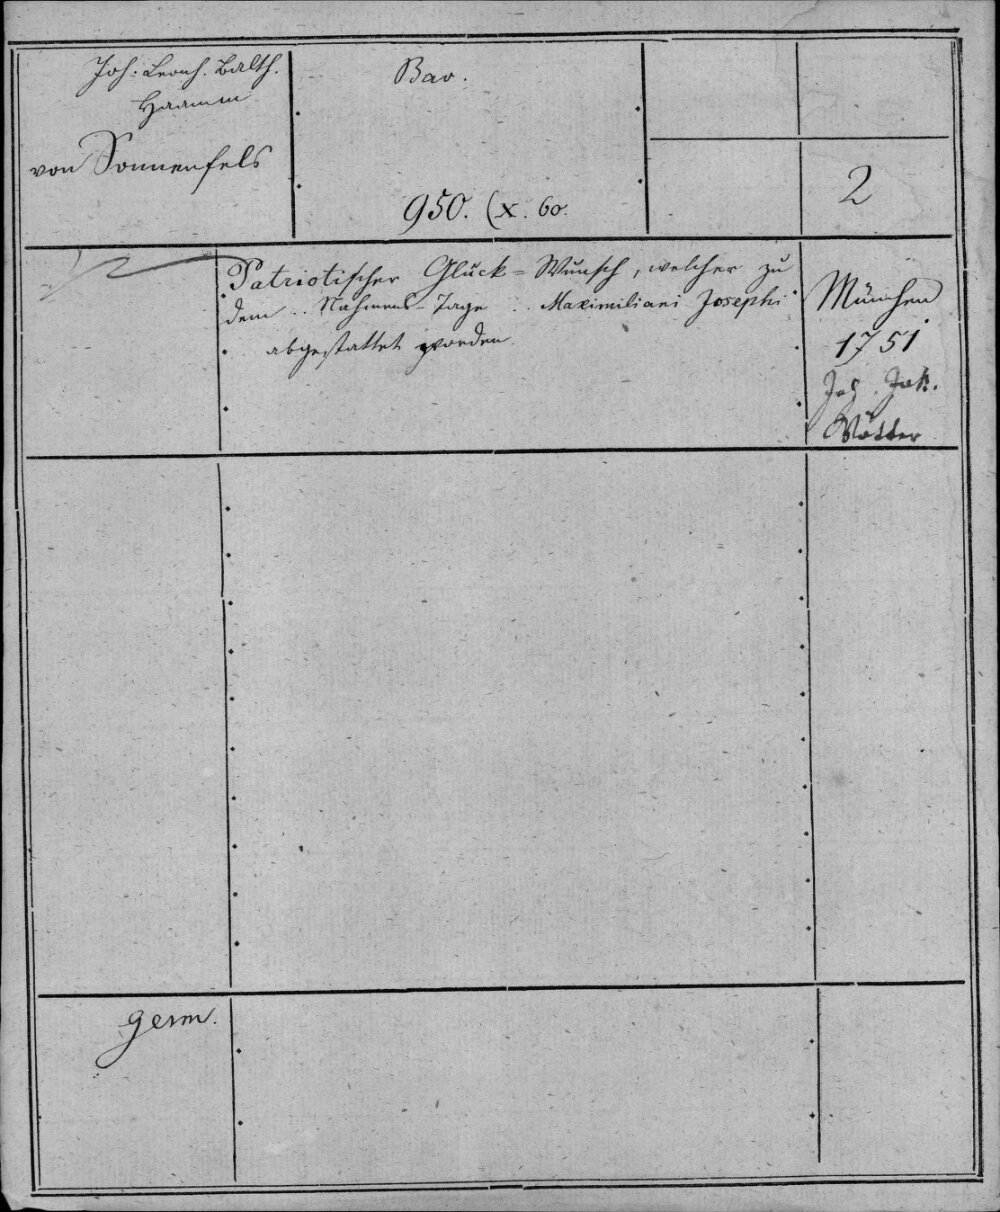 Joh: Leonh. Balth.
Haamm
von Sonnenfels
Bav.
950. (X. 60.
2
Patriotischer Glück=Wunsch, welcher zu
dem .. Nahmens-Tage .. Maximiliani Josephi
abgestattet worden
München
1751
Joh. Jak.
Vötter
germ.